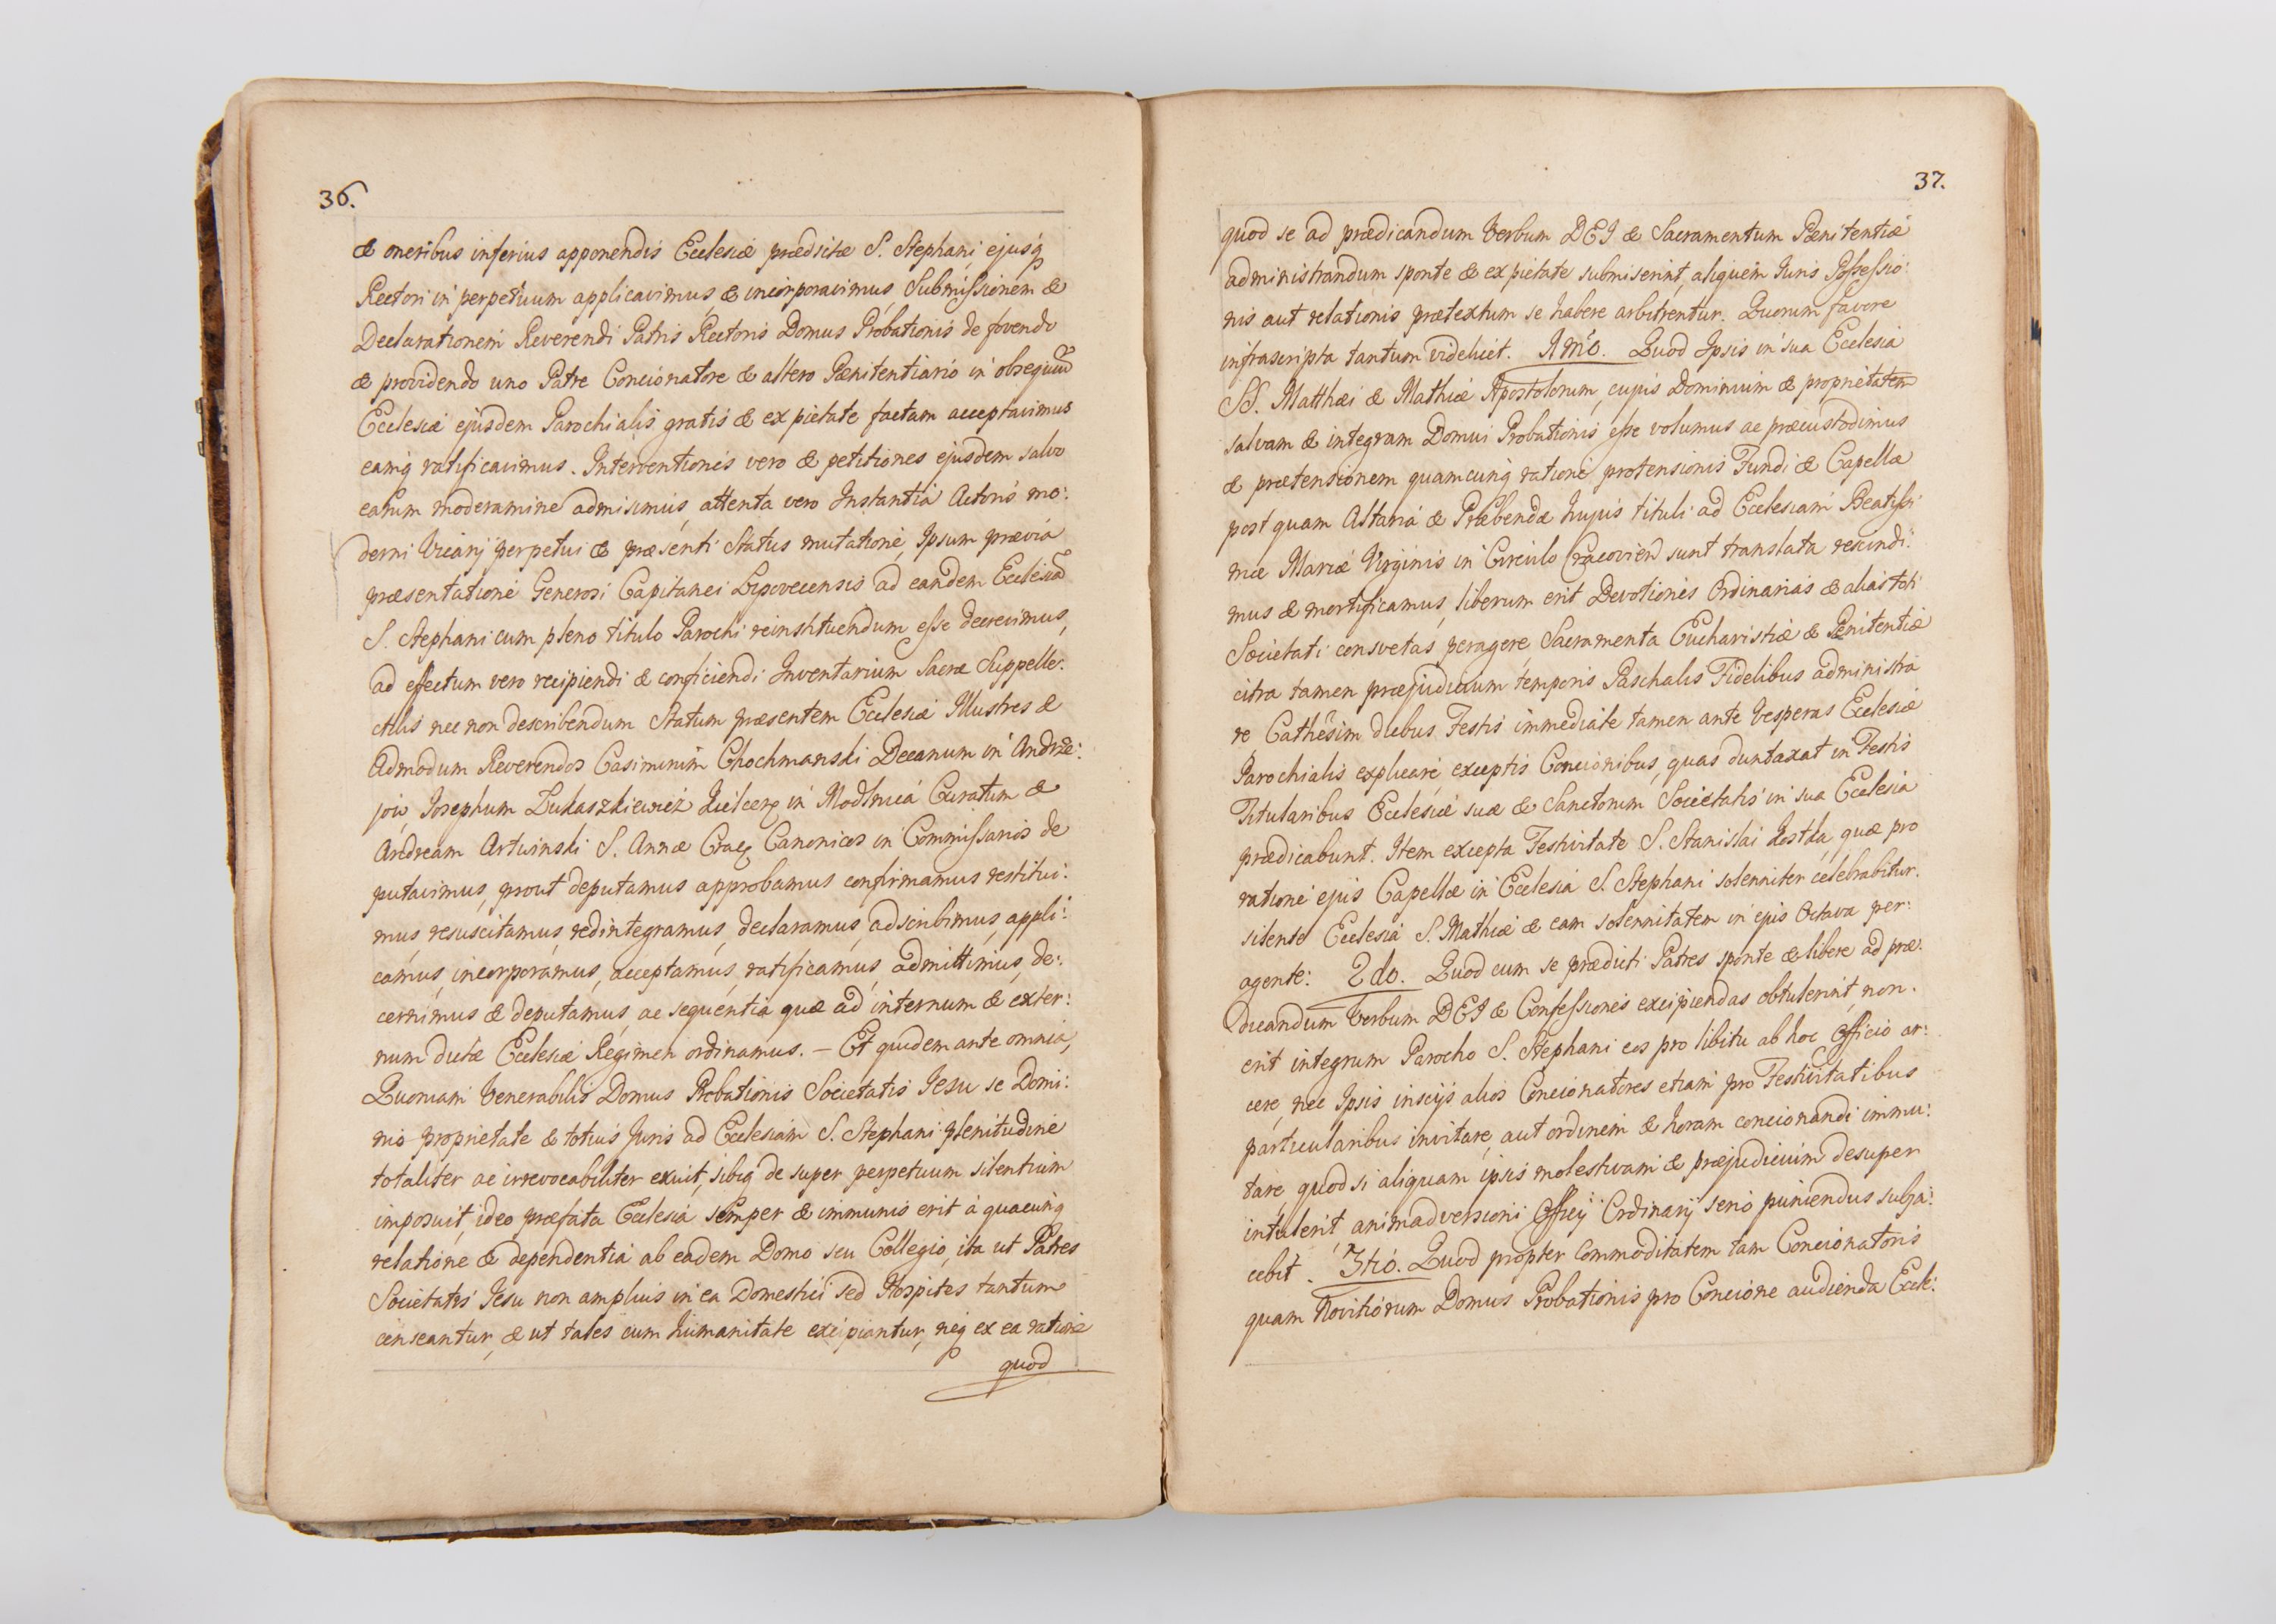 36.
& oneribus inferius apponendis Ecclesiæ prædictæ S. Stephani ejusq
Rectori in perpetuum applicavimus & incorporavimus, Submissionem &
Declarationem Reverendi Patris Rectoris Domus Probationis de fovendo
& providendo uno Patre Concionatore & altero Pænitentiario in obsequiũ
Ecclesiæ ejusdem Parochialis gratis & ex pietate factam acceptavimus
eamq ratificavimus. Interventiones vero & petitiones ejusdem salvo
earum moderamine admisimus, attenta vero Instantia Actoris mo:
derni Vicarij perpetui & præsenti Status mutatione, Ipsum prævia
præsentatione Generosi Capitanei Lipovecensis ad eandem Ecclesiã
S. Stephani cum pleno titulo Parochi reinstituendum esse decrevimus,
ad effectum vero recipiendi & conficiendi Inventarium Sacræ Suppelle:
ctilis nec non describendum Statum præsentem Ecclesiæ Illustres &
Admodum Reverendos Casimirum Chochmanski Decanum in Andrze:
jow, Josephum Lukaszkiewicz Kielcen in Modlnica Curatum &
Andream Artwinski S. Annæ Crac Canonicos in Commissarios de
putavimus, prout deputamus approbamus confirmamus restitui:
mus resuscitamus, redintegramus, declaramus, adscribimus, appli:
camus, incorporamus, acceptamus, ratificamus, admittimus, de:
cernimus & deputamus, ac sequentia quæ ad internum & exter:
num dictæ Ecclesiæ Regimen ordinamus. – Et quidem ante omnia,
Quoniam Venerabilis Domus Probationis Societatis Jesu se Domi:
nio proprietate & totius Juris ad Ecclesiam S. Stephani plenitudine
totaliter ac irrevocabiliter exuit, sibiq de super perpetuum silentium
imposuit, ideo præfata Ecclesia semper & immunis erit à quacunq
relatione & dependentia ab eadem Domo seu Collegio, ita ut Patres
Societatis Jesu non amplius in ea Domestici sed Hospites tantum
censeantur, & ut tales cum humanitate excipiantur, neq ex ea ratione
quod
37.
quod se ad prædicandum Verbum DEI & Sacramentum Pænitentiæ
administrandum sponte & ex pietate submiserint, aliquem Juris Possessio:
nis aut relationis prætextum se habere arbitrentur. Quorum favore
infrascripta tantum videlicet. 1mo. Quod Ipsis in sua Ecclesia
SS. Matthæi & Mathiæ Apostolorum, cujus Dominium & proprietatem
salvam & integram Domui Probationis esse volumus ac præcustodimus
& prætensionem quamcunq ratione protensionis Fundi & Capellæ
post quam Altaria & Præbendæ hujus tituli ad Ecclesiam Beatissi
mæ Mariæ Virginis in Circulo Cracovien sunt translata rescindi:
mus & mortificamus, liberum erit Devotiones Ordinarias & alias toti
Societati consvetas peragere, Sacramenta Eucharistiæ & Pænitentiæ
citra tamen præjudicium temporis Paschalis Fidelibus administra
re Cathesim diebus Festis immediate tamen ante Vesperas Ecclesiæ
Parochialis explicare exceptis Concionibus, quas duntaxat in Festis
Titularibus Ecclesiæ suæ & Sanctorum Societatis in sua Ecclesia
prædicabunt. Item excepta Festivitate S. Stanislai Kostka, quæ pro
ratione ejus Capellæ in Ecclesia S. Stephani solenniter celebrabitur.
silente Ecclesia S. Mathiæ & eam solennitatem in ejus Octava per:
agente: 2do. Quod cum se prædicti Patres sponte & libere ad præ:
dicandum Verbum DEI & Confessiones excipiendas obtulerint, non
erit integrum Parocho S. Stephani eos pro libitu ab hoc Officio ar:
cere, nec Ipsis inscijs alios Concionatores etiam pro Festivitatibus
particularibus invitare, aut ordinem & horam concionandi immu:
tare, quod si aliquam ipsis molestivam & præjudicium desuper
intulerit, animadversioni Officij Ordinarij serio puniendus subja:
cebit. 3tio. Quod propter Commoditatem tam Concionatoris
quam Novitiorum Domus Probationis pro Concione audienda Eccle: